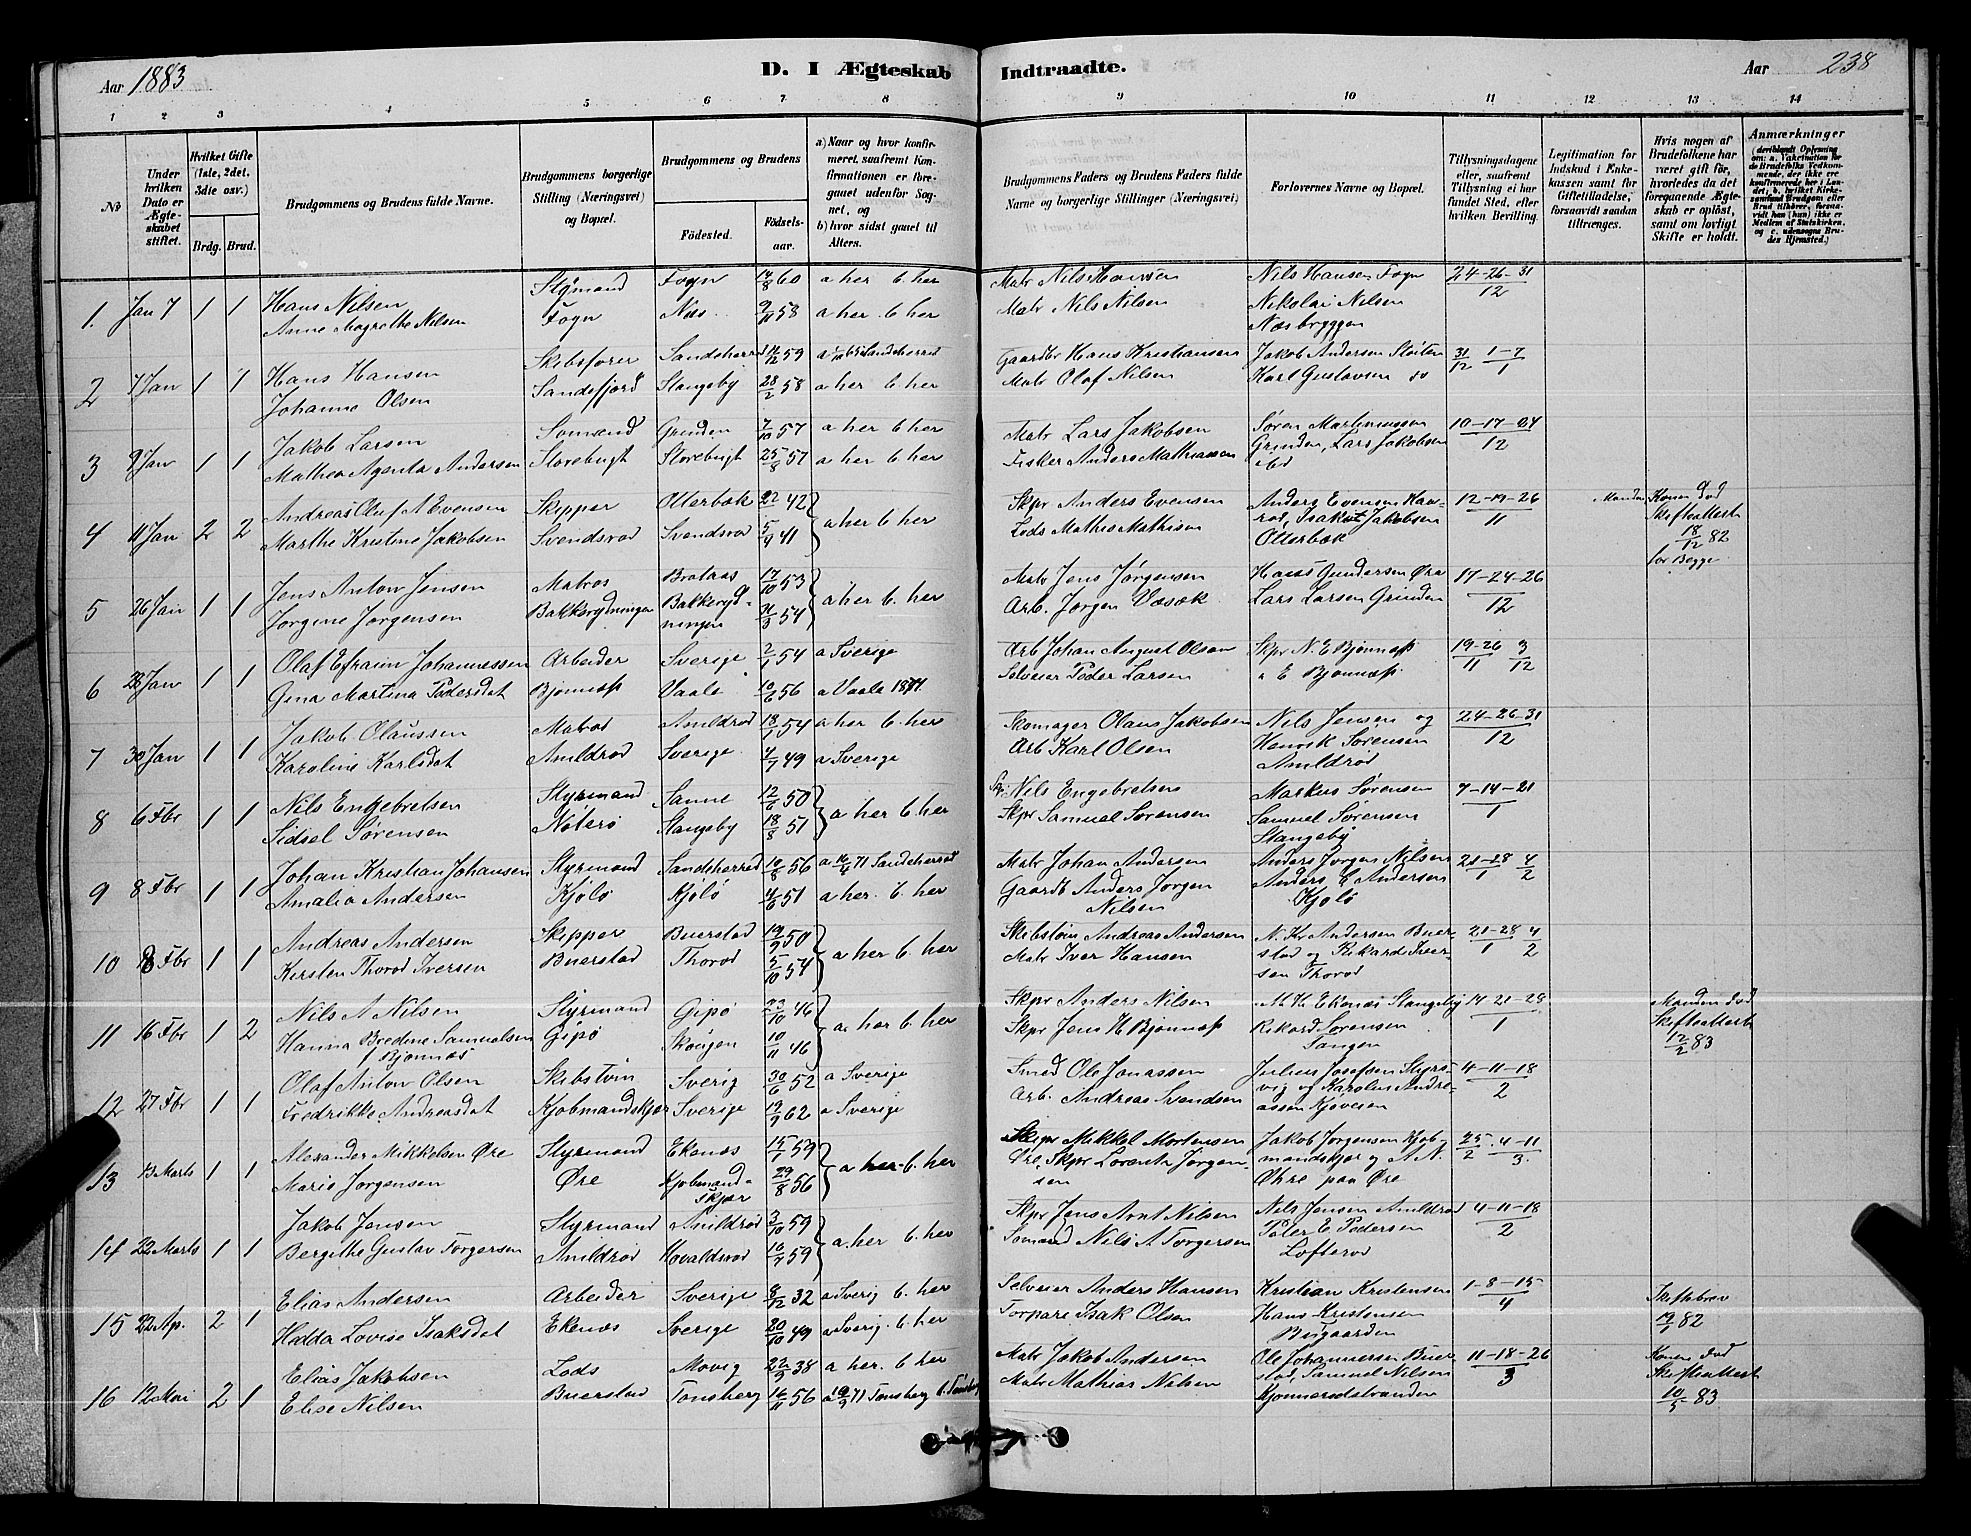 Aar 1883
D. I Ægteskab
Indtraadte.
Aar 238
1 2 3 4 5 6 7 8 9 10 11 12 13 14
№
Under hvilken Dato er Ægteskabet stiftet.
Hvilket Gifte (1ste, 2det, 3die osv.)
Brdg. Brud.
Brudgommens og Brudens fulde Navne.
Brudgommens borgerlige Stilling (Næringsvei) og Bopæl.
Brudgommens og Brudens
Fødested. Fødselsaar.
a) Naar og hvor konfirmeret, saafremt Konfirmationen er foregaaet udenfor Sognet, og
b) hvor sidst gaaet til Alters.
Brudgommens Faders og Brudens Faders fulde Navne og borgerlige Stillinger (Næringsvei)
Forlovernes Navne og Bopæl.
Tillysningsdagene eller, saafremt Tillysning ei har fundet Sted, efter hvilken Bevilling.
Legitimation for Indskud i Enkekassen samt for Giftetilladelse, forsaavidt saadan tiltrænges.
Hvis nogen af Brudefolkene har været gift før, hvorledes da det foregaaende Ægteskab er opløst, samt om lovligt Skifte er holdt.
Anmærkninger
1. Jan 7 1 1 Hans Nilsen Styrmand Fogn 14/8 60 a her b. her Matr Nils Hansen Nils Hansen Fogn 24-26-31
Anne Magrethe Nilsen Fogn Næs 9/11 58 a her b her Matr Nils Nilsen Nikolai Nilsen 12
Næsbryggen
2 7 Jan 1 1 Hans Hansen Skibsfører Sandeherred 59 Sandeherred Gaardbr Hans Kristiansen Jakob Andersen 31/12 1-7/1
Johanne Olsen Sandefjord Stangeby 28/2 58 a her b her Matr Olaf Nilsen Karl Gustavsen do
3 9 Jan 1 1 Jakob Larsen Sømand Grinden 7/10 57 a her b her Matr Lars Jakobsen Søren Martinussen 10-17-24
Mathea Agenta Andersen Storebugt Storebugt 25/8 57 a her b her Fisker Anders Mathiassen Grinden, Lars Jakobsen 12
ibd
4 11 Jan 2 2 Andreas Oluf A Evensen Skipper Otterbæk 42 Skpr Anders Evensen Anders Evensen Hav- 12-19-26 Manden Konen død
Marthe Kristine Jakobsen Svendsrød Svendsrød 5/9 41 a her b her Lods Mathis Mathisen rød, Isak Jakobsen 11 Skifteattest
Otterbæk 18/12 82
for Begge
5 26 Jan 1 1 Jens Anton Jensen Matros Brataas 17/10 53 Matr Jens Jørgensen Hans Gundersen Øre 17-24-26
Jørgine Jørgensen Bakkerydningen Bakkeryd- 54 a her b. her Arb. Jørgen Væsæk Lars Larsen Grinden 12
ningen
6 28 Jan 1 1 Olaf Efraim Johannessen Arbeider Sverige 2/1 54 a Sverige Arb Johan August Olsen Skpr N. E Bjønnæss 19-26/11 3/12
Gina Martina Pedersdat Bjønnæss Vaale 10/6 56 a Vaale 1871. Selveier Peder Larsen " E Bjønnæss.
7 30 Jan 1 1 Jakob Olaussen Matros Amildrød 18/1 54 a her b. her Skomager Olaus Jakobsen Nils Jensen og 24-26-31
Karoline Karlsdat Amildrød Sverige 4/7 49 a Sverige Arb Karl Olsen Henrik Sørensen 12
Amildrød
8 6 Fbr 1 1 Nils Engebretsen Styrmand Sanne 12/6 50 Skpr. Nils Engebretsen Markus Sørensen 7-14-21
Sidsel Sørensen Nøterø Stangeby 18/8 51 a her b. her Skpr Samuel Sørensen Samuel Sørensen 1
Stangeby
9 8 Fbr 1 1 Johan Kristian Johansen Styrmand Sandeherred 10/8 56 a 16/4 71 Sandeherred Matr Johan Andersen Anders Jørgen Nilsen 21-28/1 4/2
Amalia Andersen Kjøløo Kjølø 4/6 51 a her. b. her Gaardb Anders Jørgen Anders E Andersen
Nilsen Kjølø
10 8 Fbr 1 1 Andreas Andersen Skipper Buerstad 19/9 50 Skibstøm Andreas Andersen N. Kr Andersen Buer- 21-28/1 4/2
Kirsten Thorød Iversen Buerstad Thorød 5/10 54 a her b. her Matr Iver Hansen stad og Rikard Iver-
sen Thorød
11 16 Fbr 1 2 Nils A Nilsen Styrmand Gipø 46 Skpr Anders Nilsen M. H. Ekenæs Stangeby 14-21-28 Manden død
Hanna Bredine Samuelsen Gipø Skougen 10/11 46 a her b. her Skpr Jens H Bjønnæss Rikard Sørensen 1 Skifteattest
f Bjønnæs Tangen 12/2 83
12 27 Fbr 1 1 Olaf Anton Olsen Skibstøm Sverig 30/6 52 a Sverige Smed Ole Jonassen Julius Josefsen Styrs- 4-11-18
Fredrikke Andreasdat Kjøbmandskjær Sverige 19/9 62 a Sverige Arb. Andreas Svendsen vig og Karolus Andre- 2
assen Kjøveien
13 13 Marts 1 1 Alexander Mikkelsen Øre Styrmand Ekenæs 15/1 59 Skpr Mikkel Mortensen Jakob Jørgensen Kjøb- 25/2 4-11/3.
Marie Jørgensen Øre Kjøbmand- 29/8 56 a her b. her Øre, Skpr Lorents Jørgen- mandskjær og A. N.
skjær sen Øhre paa Øre
14 22 Marts 1 1 Jakob Jensen Styrmand Amildrød 3/10 59 Skpr Jens Arnt Nilsen Nils Jensen Amildrød 4-11-18
Bergithe Gustav Torgersen Amildrød Hovaldsrød 59 a. her b. her Sømand Nils A Torgersen Peter E Pedersen 2
Lofterød
15 22 Ap. 2 1 Elias Andersen Arbeider Sverige 8/12 32 a Sverig b. her Selveier Anders Hansen Kristian Kristensen 1-8-15 Skiftebrev
Hedda Lovise Isaksdat Ekenæs Sverige 20/10 49 a Sverig. b. her Torpare Isak Olsen Hans Kristensen 4 19/1 82
Bugaarden
16 12 Mai 2 1 Elias Jakobsen Lods Movig 22/9 38 a her. b her Matr Jakob Andersen Ole Johannesen Buer- 11-18-26 Konen død
Elise Nilsen Buerstad Tønsberg 16/11 56 71 Tønsberg b. Tønsberg Matr Mathias Nilsen stad, Samuel Nilsen 3 Skifteattest
Kjønnerødstranden 10/5 83